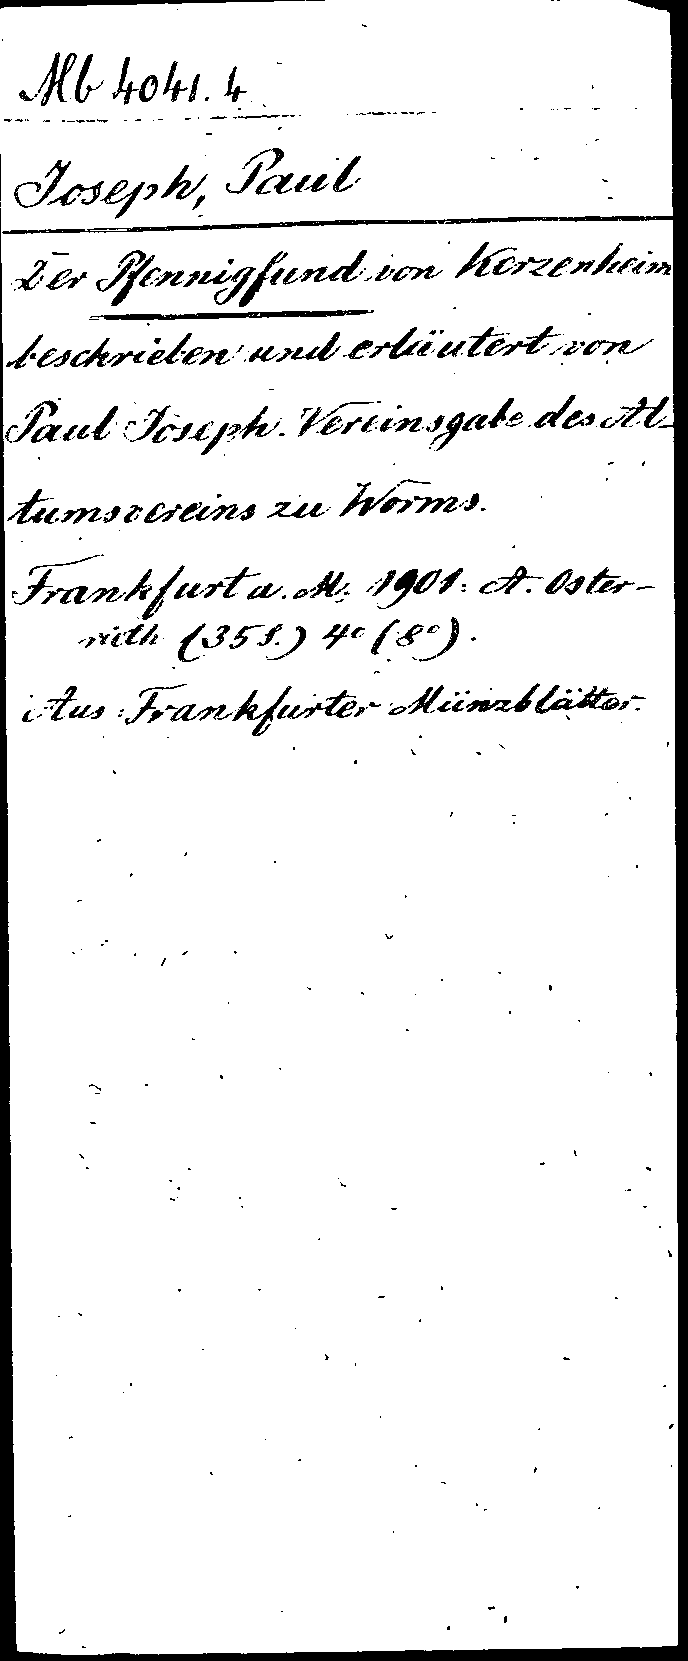 Mb 4041.4
Joseph, Paul
Der Pfennigfund von Kerzenheim
beschrieben und erläutert von
Paul Joseph. Vereinsgabe des Al-
tumsvereins zu Worms.
Frankfurt a. M. 1901. A. Oster-
rieth (35 S.) 4° (8°).
Aus: Frankfurter Münzblätter.